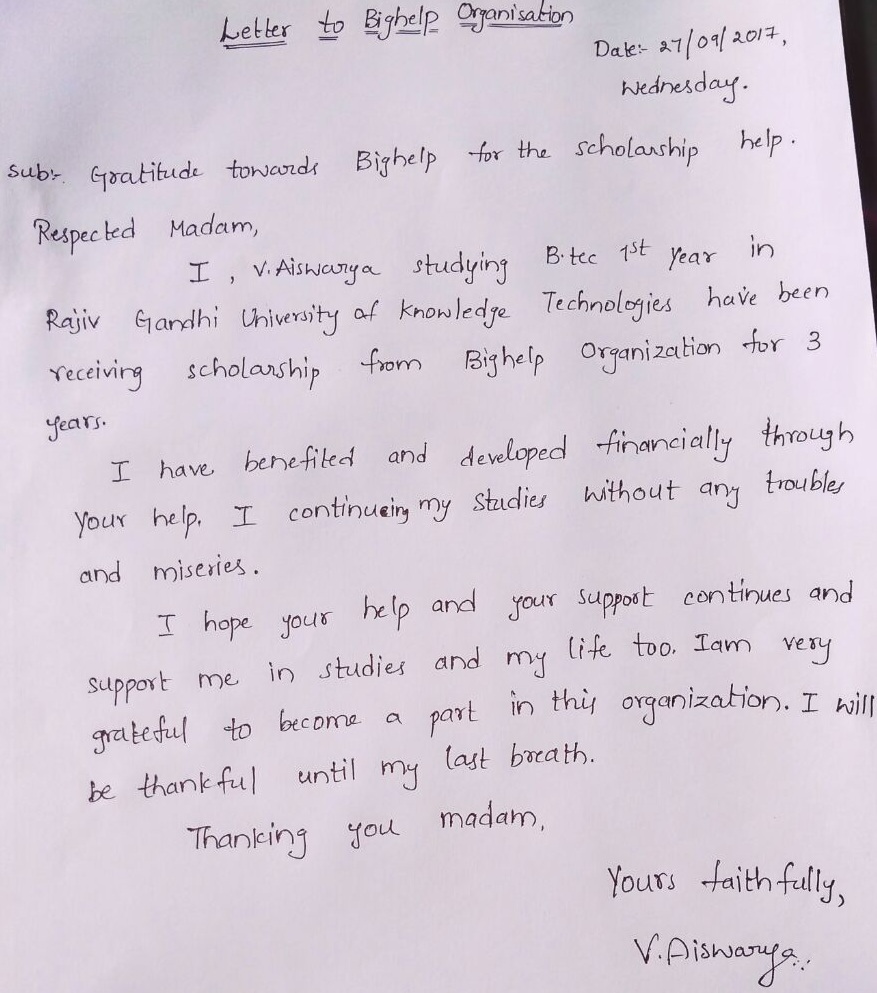 Letter to Bighelp Organisation
Date:- 27/09/2017,
Wednesday.
Sub:- Gratitude towards Bighelp for the scholarship help.
Respected Madam,
I, V. Aiswarya studying B.tec 1st year in
Rajiv Gandhi University of Knowledge Technologies have been
receiving scholarship from Bighelp Organization for 3
years.
I have benefited and developed financially through
your help. I continueing my studies without any troubles
and miseries.
I hope your help and your support continues and
support me in studies and my life too. Iam very
grateful to become a part in this organization. I will
be thankful until my last breath.
Thanking you madam,
Yours faithfully,
V.Aiswarya..